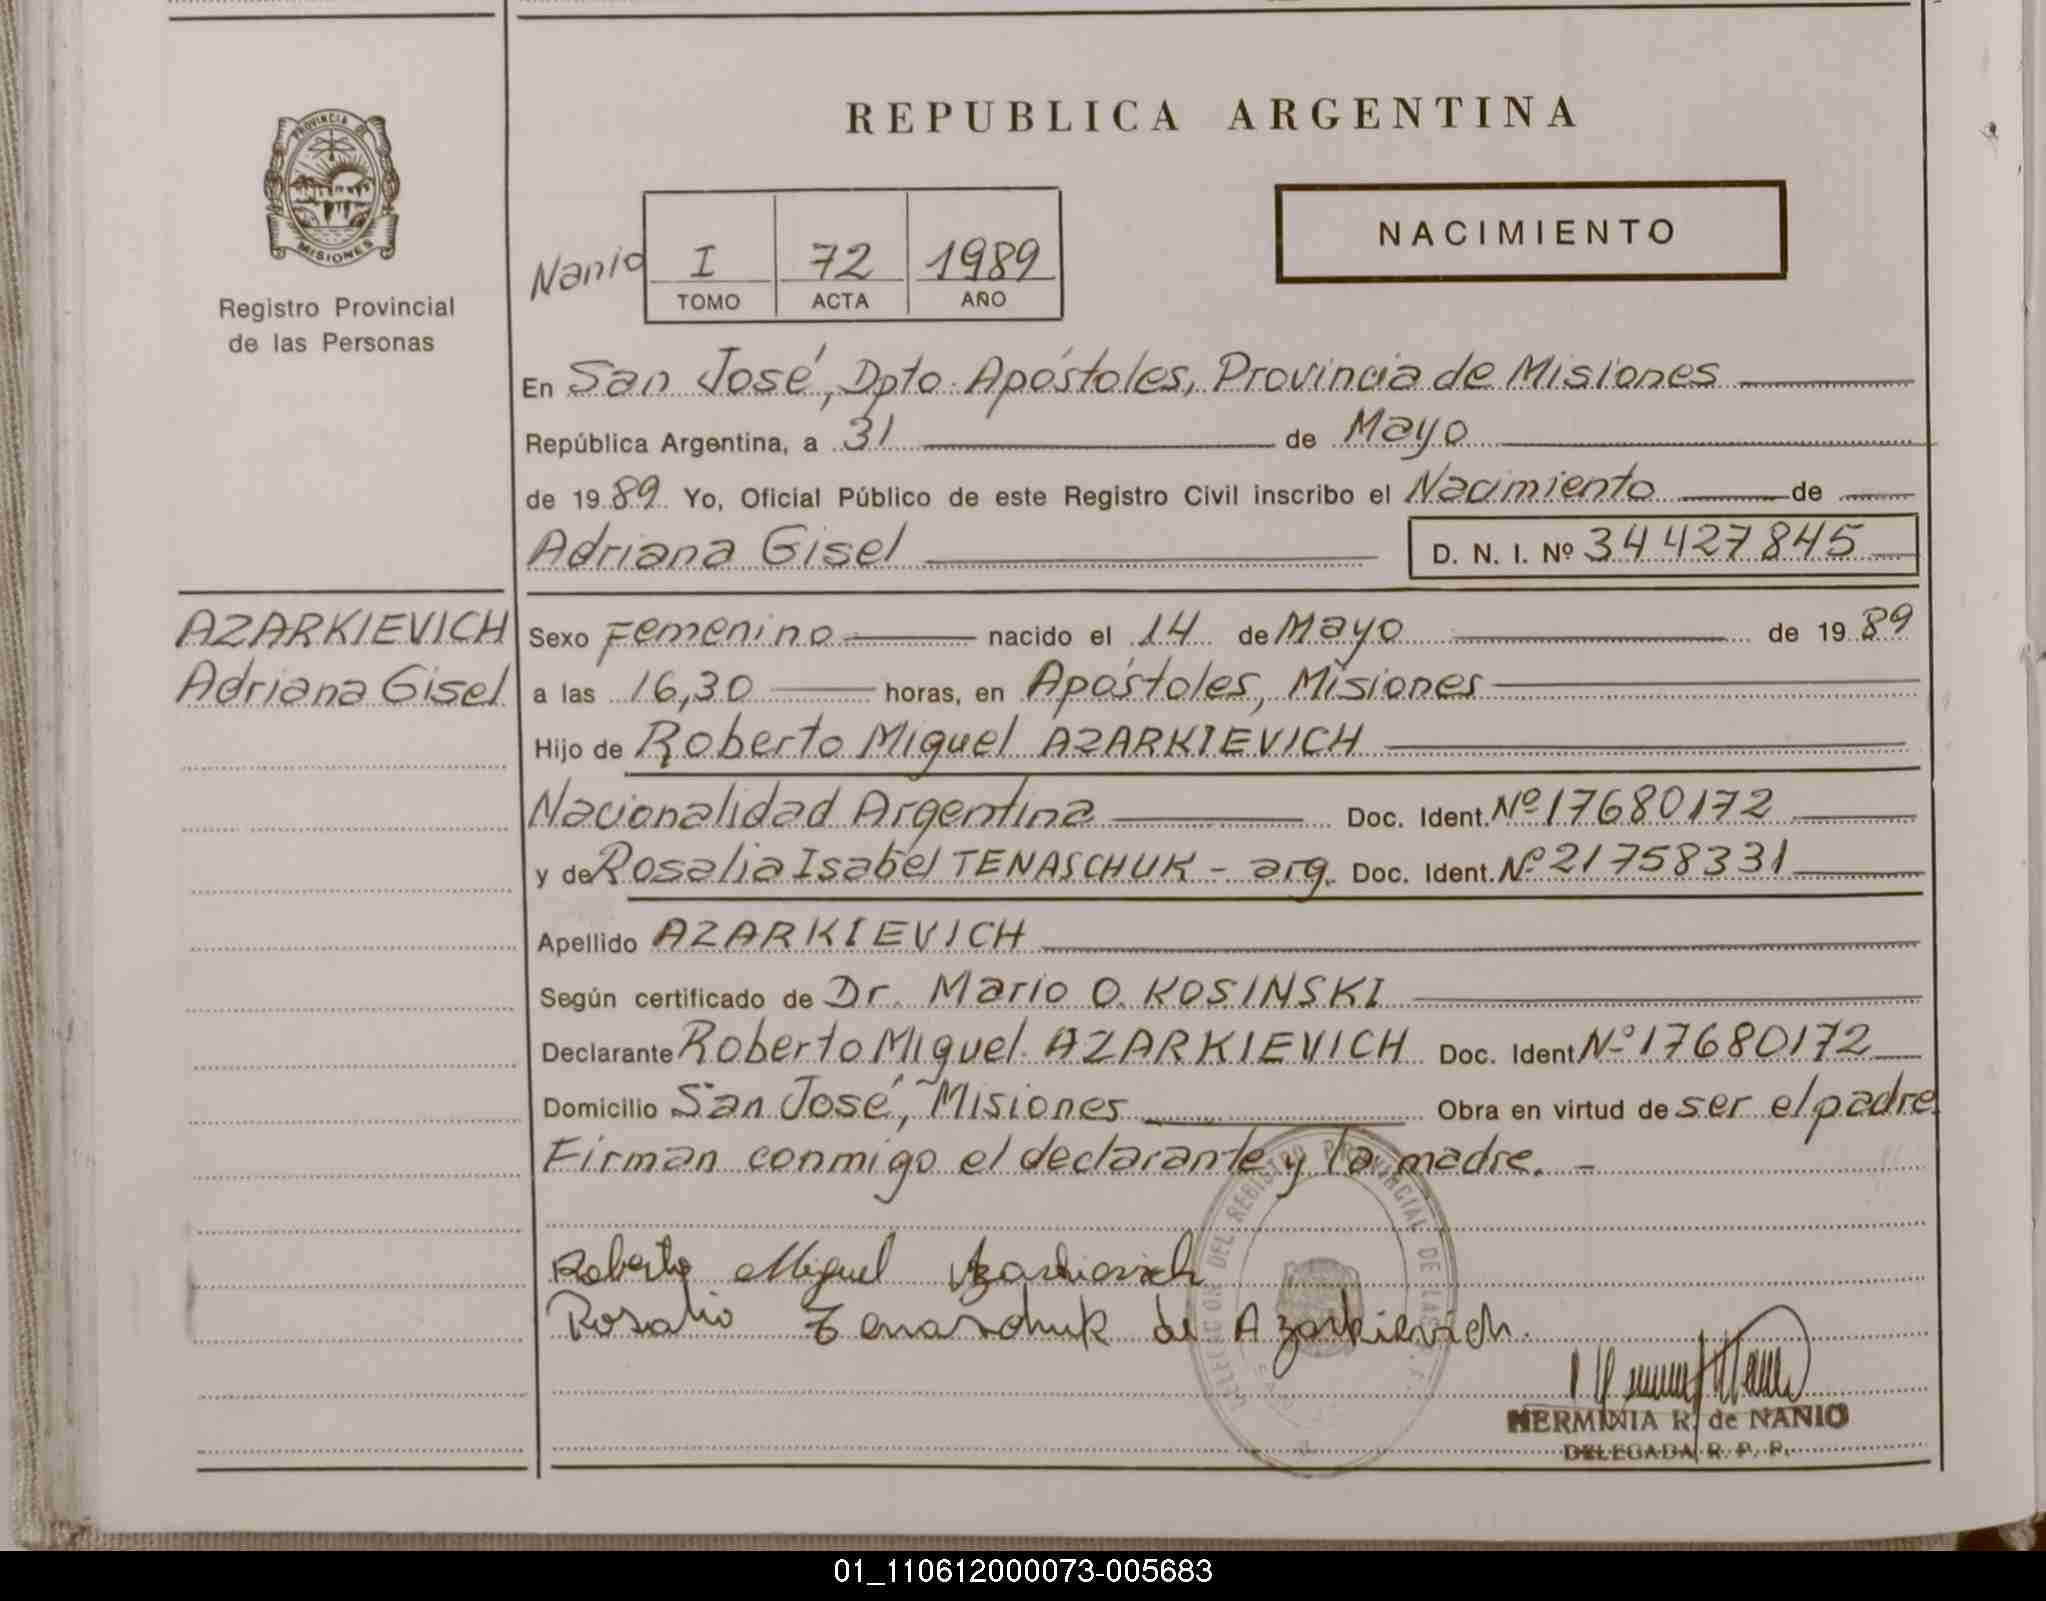 REPUBLICA ARGENTINA
PROVINCIA DE
MISIONES
Registro Provincial
de las Personas
NACIMIENTO
Nanio
I 72 1989
TOMO ACTA AÑO
En San José, Dpto. Apóstoles, Provincia de Misiones
República Argentina, a 31 de Mayo
de 1989 Yo, Oficial Público de este Registro Civil inscribo el Nacimiento de
Adriana Gisel D. N. I. Nº 34427845
AZARKIEVICH
Adriana Gisel
Sexo Femenino nacido el 14 de Mayo de 1989
a las 16,30 horas, en Apóstoles, Misiones
Hijo de Roberto Miguel AZARKIEVICH
Nacionalidad Argentina Doc. Ident. Nº 17680172
y de Rosalia Isabel TENASCHUK - arg. Doc. Ident. Nº 21758331
Apellido AZARKIEVICH
Según certificado de Dr. Mario O. KOSINSKI
Declarante Roberto Miguel AZARKIEVICH Doc. Ident Nº 17680172
Domicilio San José, Misiones Obra en virtud de ser el padre
Firman conmigo el declarante y la madre. -
Roberto Miguel Azarkievich
Rosalia Tenaschuk de Azarkievich.
DEL REGISTRO PROVINCIAL DE LAS
HERMINIA R. de NANIO
DELEGADA R. P. P.
01_110612000073-005683